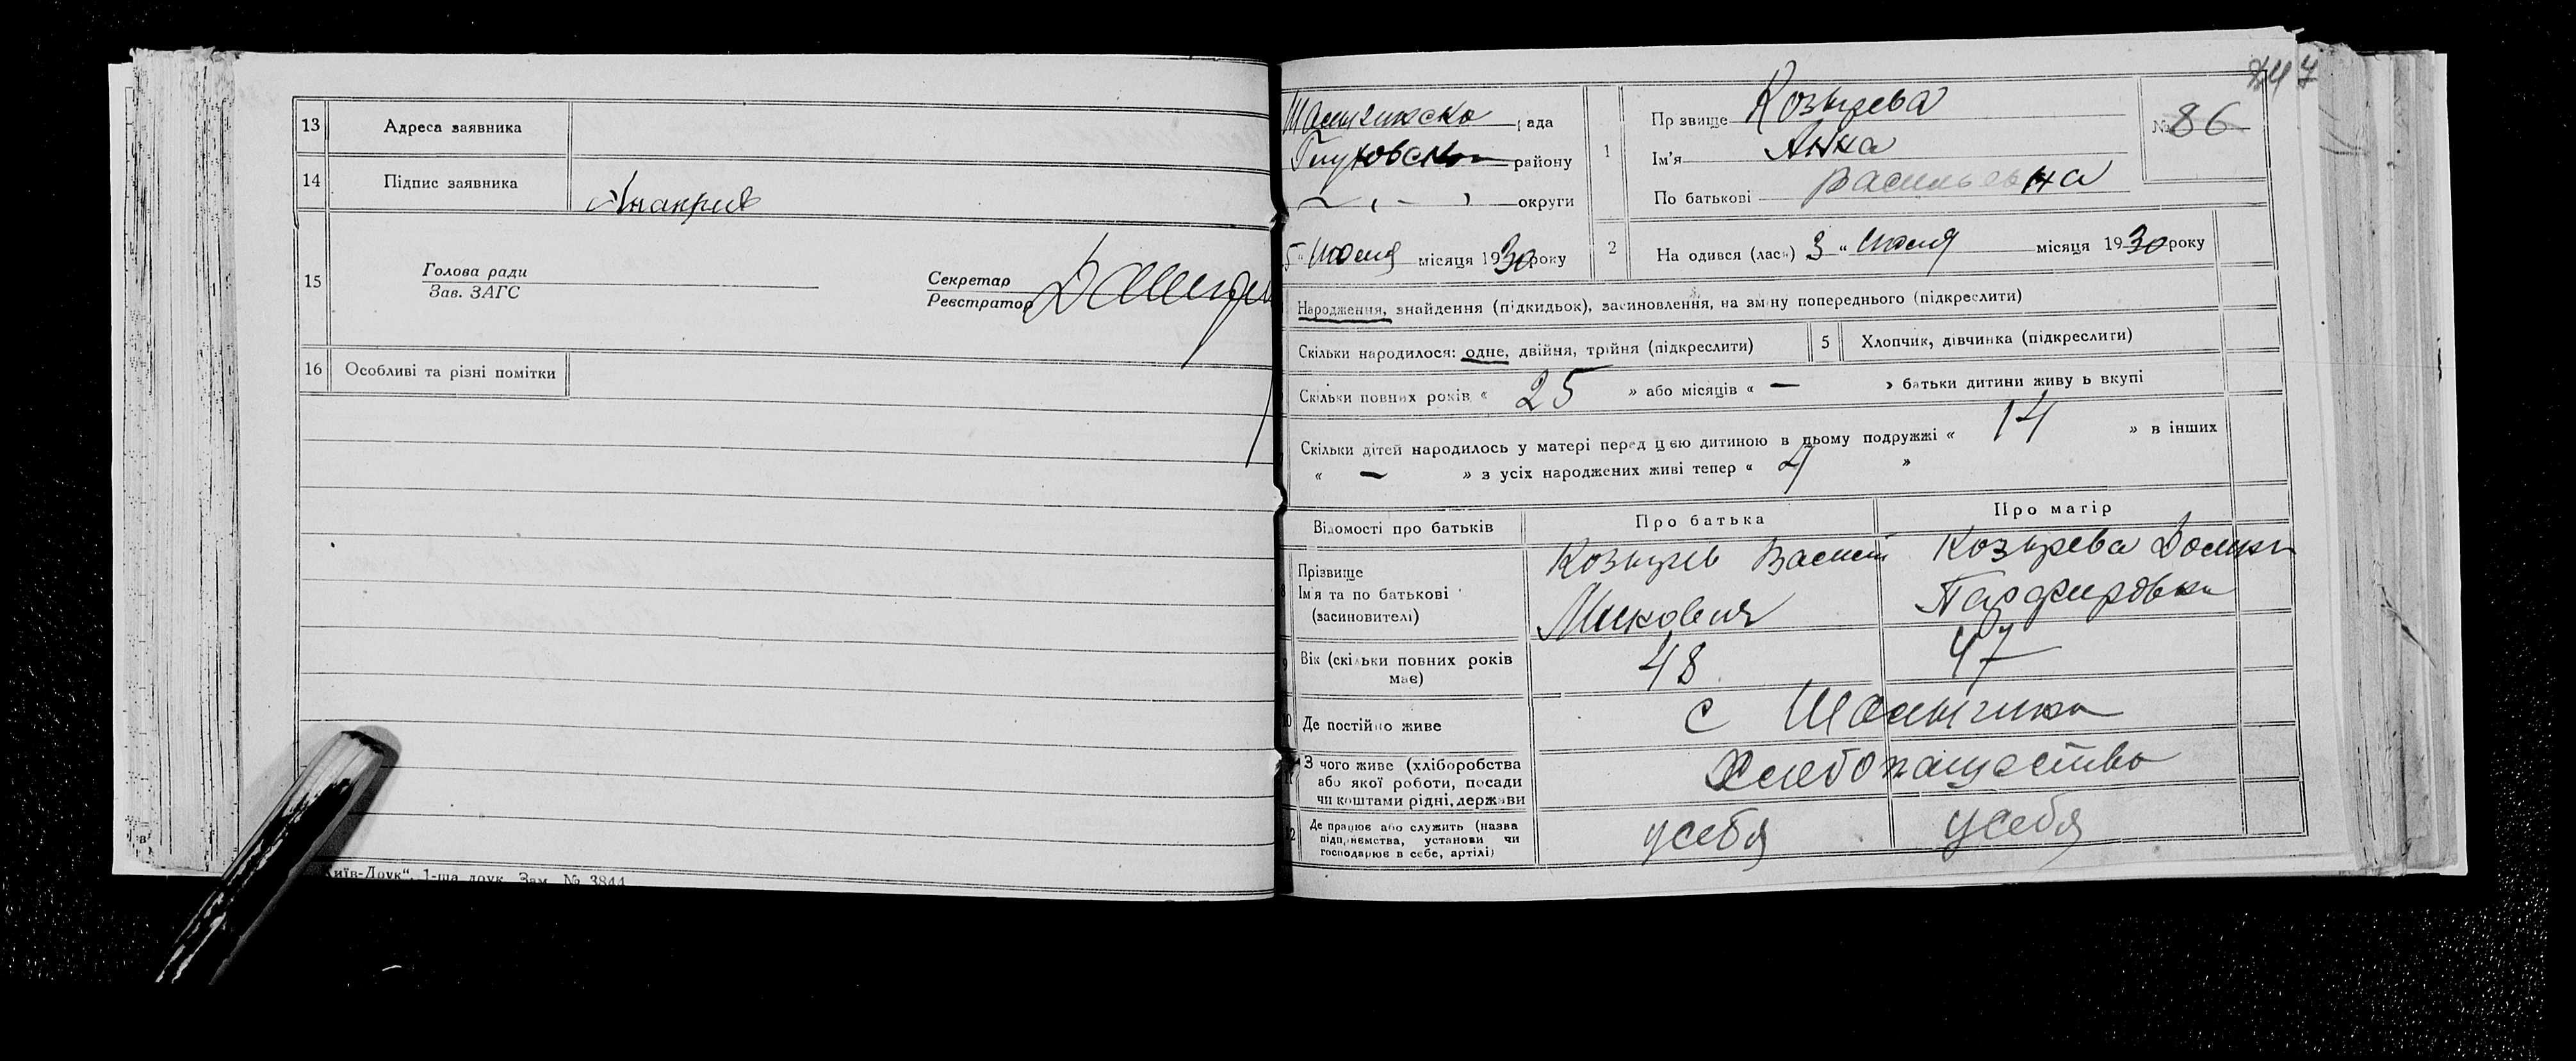 13 Адреса заявника
14 Підпис заявника
15 Голова ради
Зав. ЗАГС
Секретар
Реєстратор
16 Особливі та різні помітки
Київ-Друк“. 1-ша друк. Зам. № 3844
рада
Глуховског району
округи
5 " Июля місяця 1930 року
1 Прізвище Козырева
Ім'я Анна
По батькові Васильевна
№ 86
2 На одився (лась) 3 " Июля місяця 1930 року
Народження, знайдення (підкидьок), засиновлення, на зміну попереднього (підкреслити)
Скільки народилося: одне, двійня, трійня (підкреслити) 5 Хлопчик, дівчинка (підкреслити)
Скільки повних років « 25 » або місяців « — » батьки дитини живуть вкупі
Скільки дітей народилось у матері перед цею дитиною в цьому подружжі « 14 » в інших
« — » з усіх народжених живі тепер « 4 »
Відомості про батьків Про батька Про матір
Прізвище
Ім'я та по батькові
(засиновителі)
Козырев Василий
Козырева
Вік (скільки повних років має) 48 47
10 Де постійно живе с Шалыгина
З чого живе (хліборобства або якої роботи, посади чи коштами рідні, держави Хлебопашество
12 Де працює або служить (назва підприємства, установи чи господарює в себе, артілі) усебя усебя